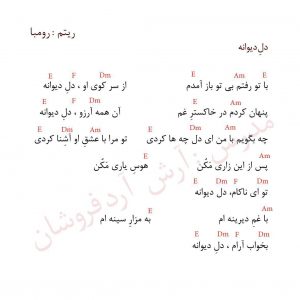 ریتم : رومبا
دلِ دیوانه
E Am E F Dm
با تو رفتم بی تو باز آمدم از سر کوی او ، دل دیوانه
E Am E F Dm
پنهان کردم در خاکسترِ غم آن همه آرزو ، دل دیوانه
E Am E Dm
چه بگویم با من ای دل چه ها کردی تو مرا با عشقِ او آشنا کردی
E Am E
پس از این زاری مَکُن هوسِ یاری مَکُن
E F Dm
تو ای ناکام، دل دیوانه
Am E
با غم دیرینه ام به مزارِ سینه ام
E F Dm
بخواب آرام ، دل دیوانه
مدرس : آرش اردفروشان